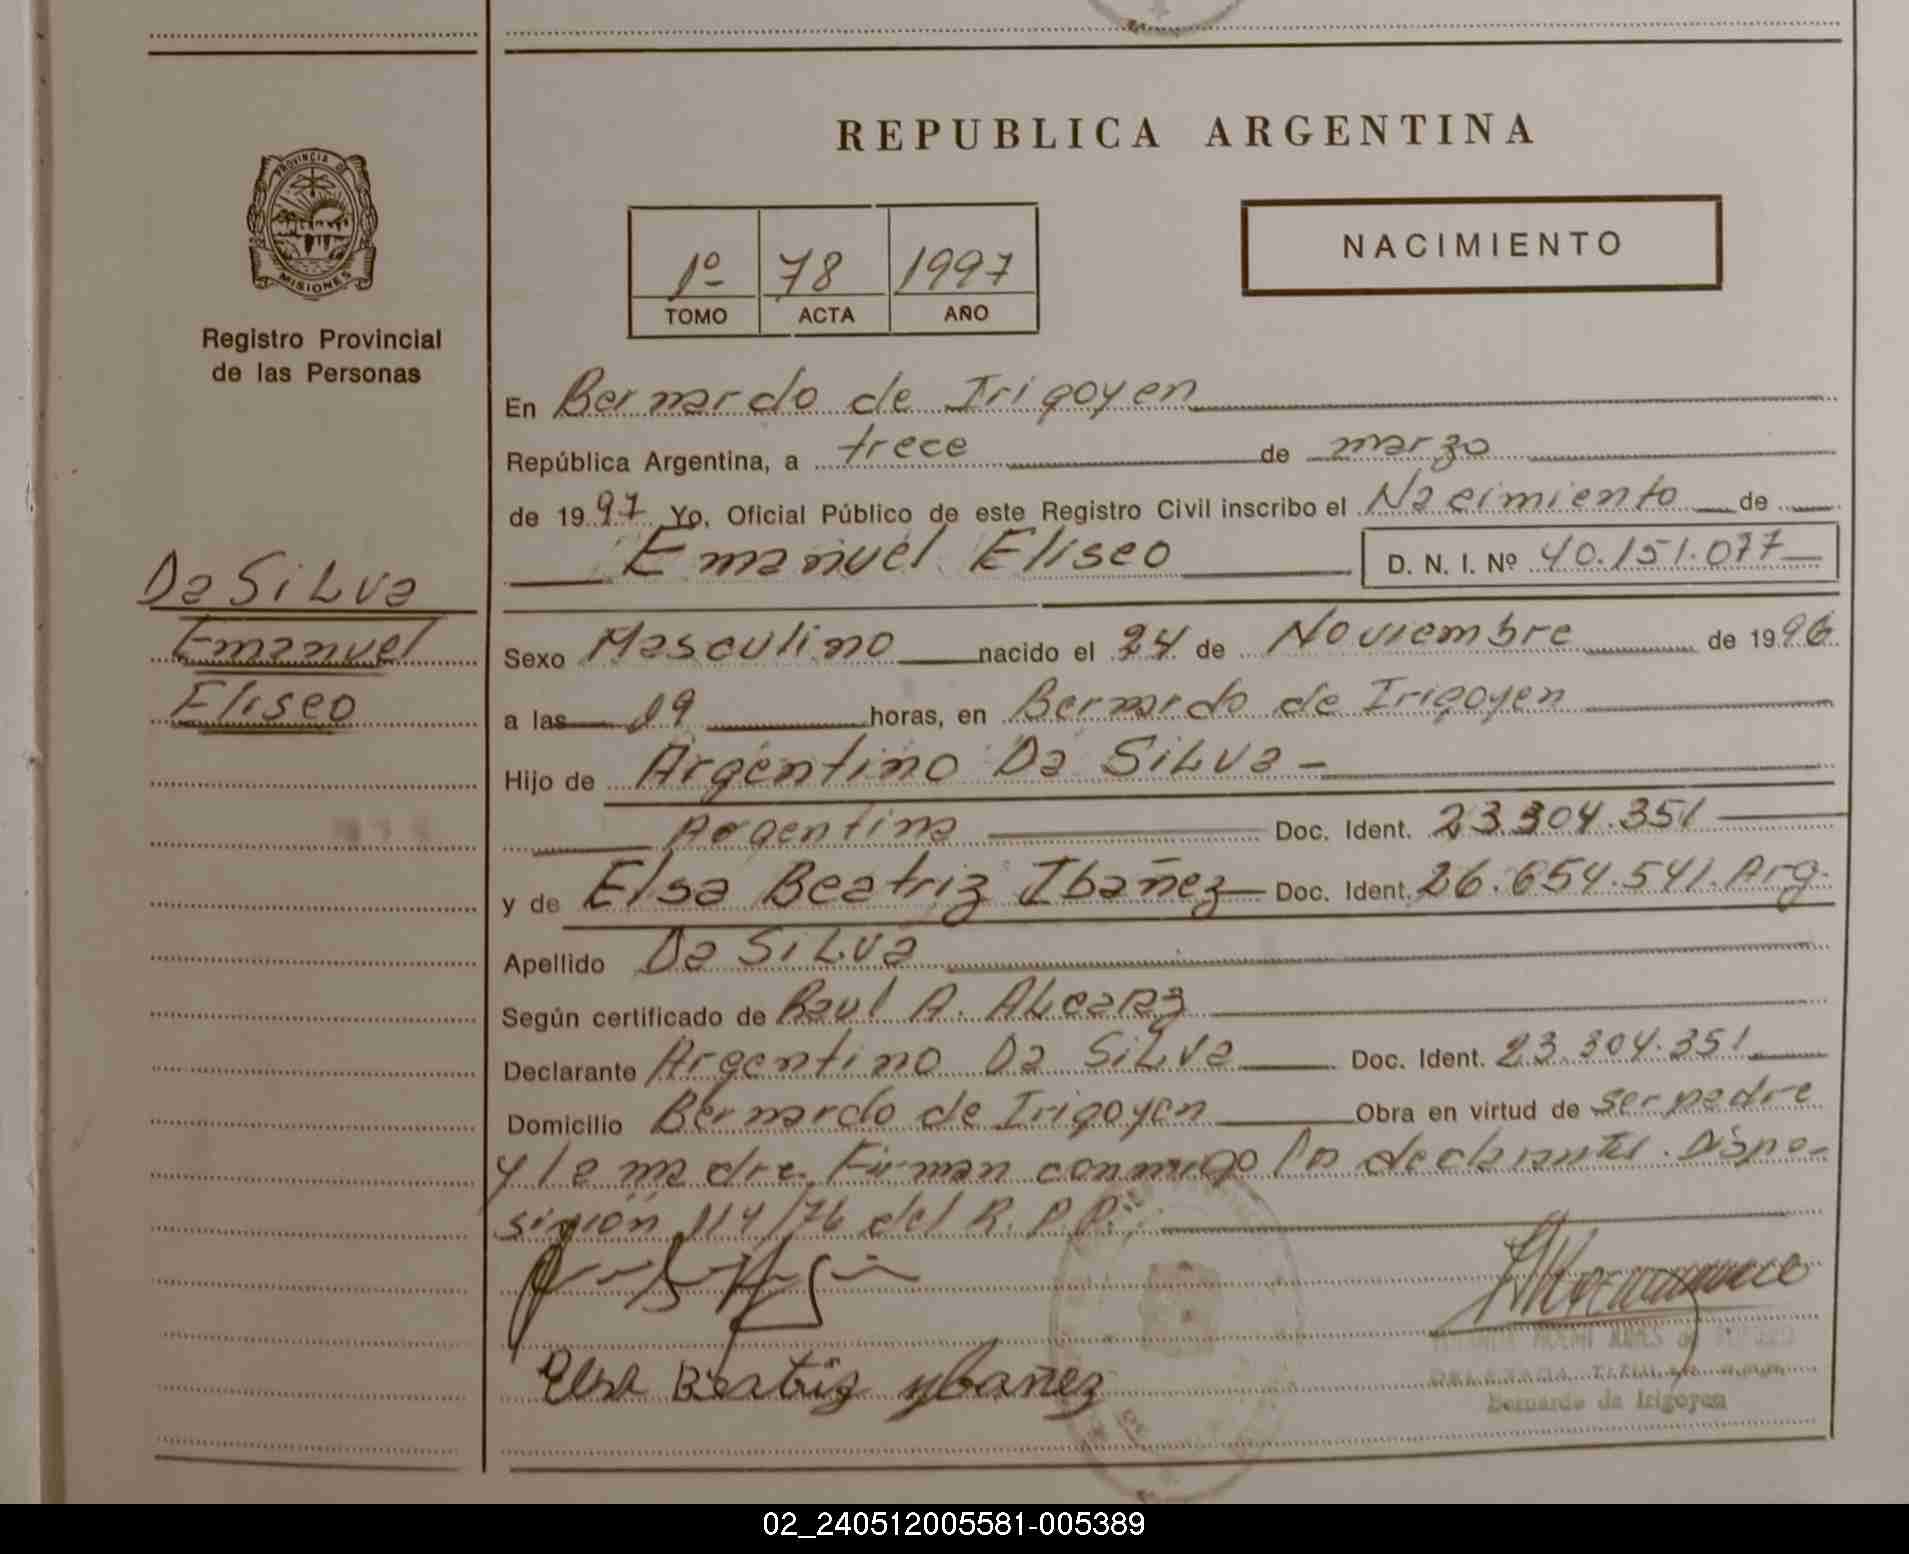 PROVINCIA DE
MISIONES
Registro Provincial
de las Personas
Da SiLva
Emanuel
Eliseo
REPUBLICA ARGENTINA
1º 78 1997
TOMO ACTA AÑO
NACIMIENTO
En Bernardo de Irigoyen
República Argentina, a trece de marzo
de 1997 Yo, Oficial Público de este Registro Civil inscribo el Nacimiento de
Emanuel Eliseo D. N. I. Nº 40.151.077
Sexo Masculino nacido el 24 de Noviembre de 1996
a las 19 horas, en Bernardo de Irigoyen
Hijo de Argentino Da SiLva -
Argentina Doc. Ident. 23.304.351
y de Elsa Beatriz Ibañez Doc. Ident. 26.654.541. Arg.
Apellido Da SiLva
Según certificado de Raul A. ALcaraz
Declarante Argentino Da SiLva Doc. Ident. 23.304.351
Domicilio Bernardo de Irigoyen Obra en virtud de ser padre
y la madre. Firman conmigo los declarantes. Dispo-
sición 114/76 del R.P.P.
Elsa Beatriz ybañez
Bernardo de Irigoyen
02_240512005581-005389